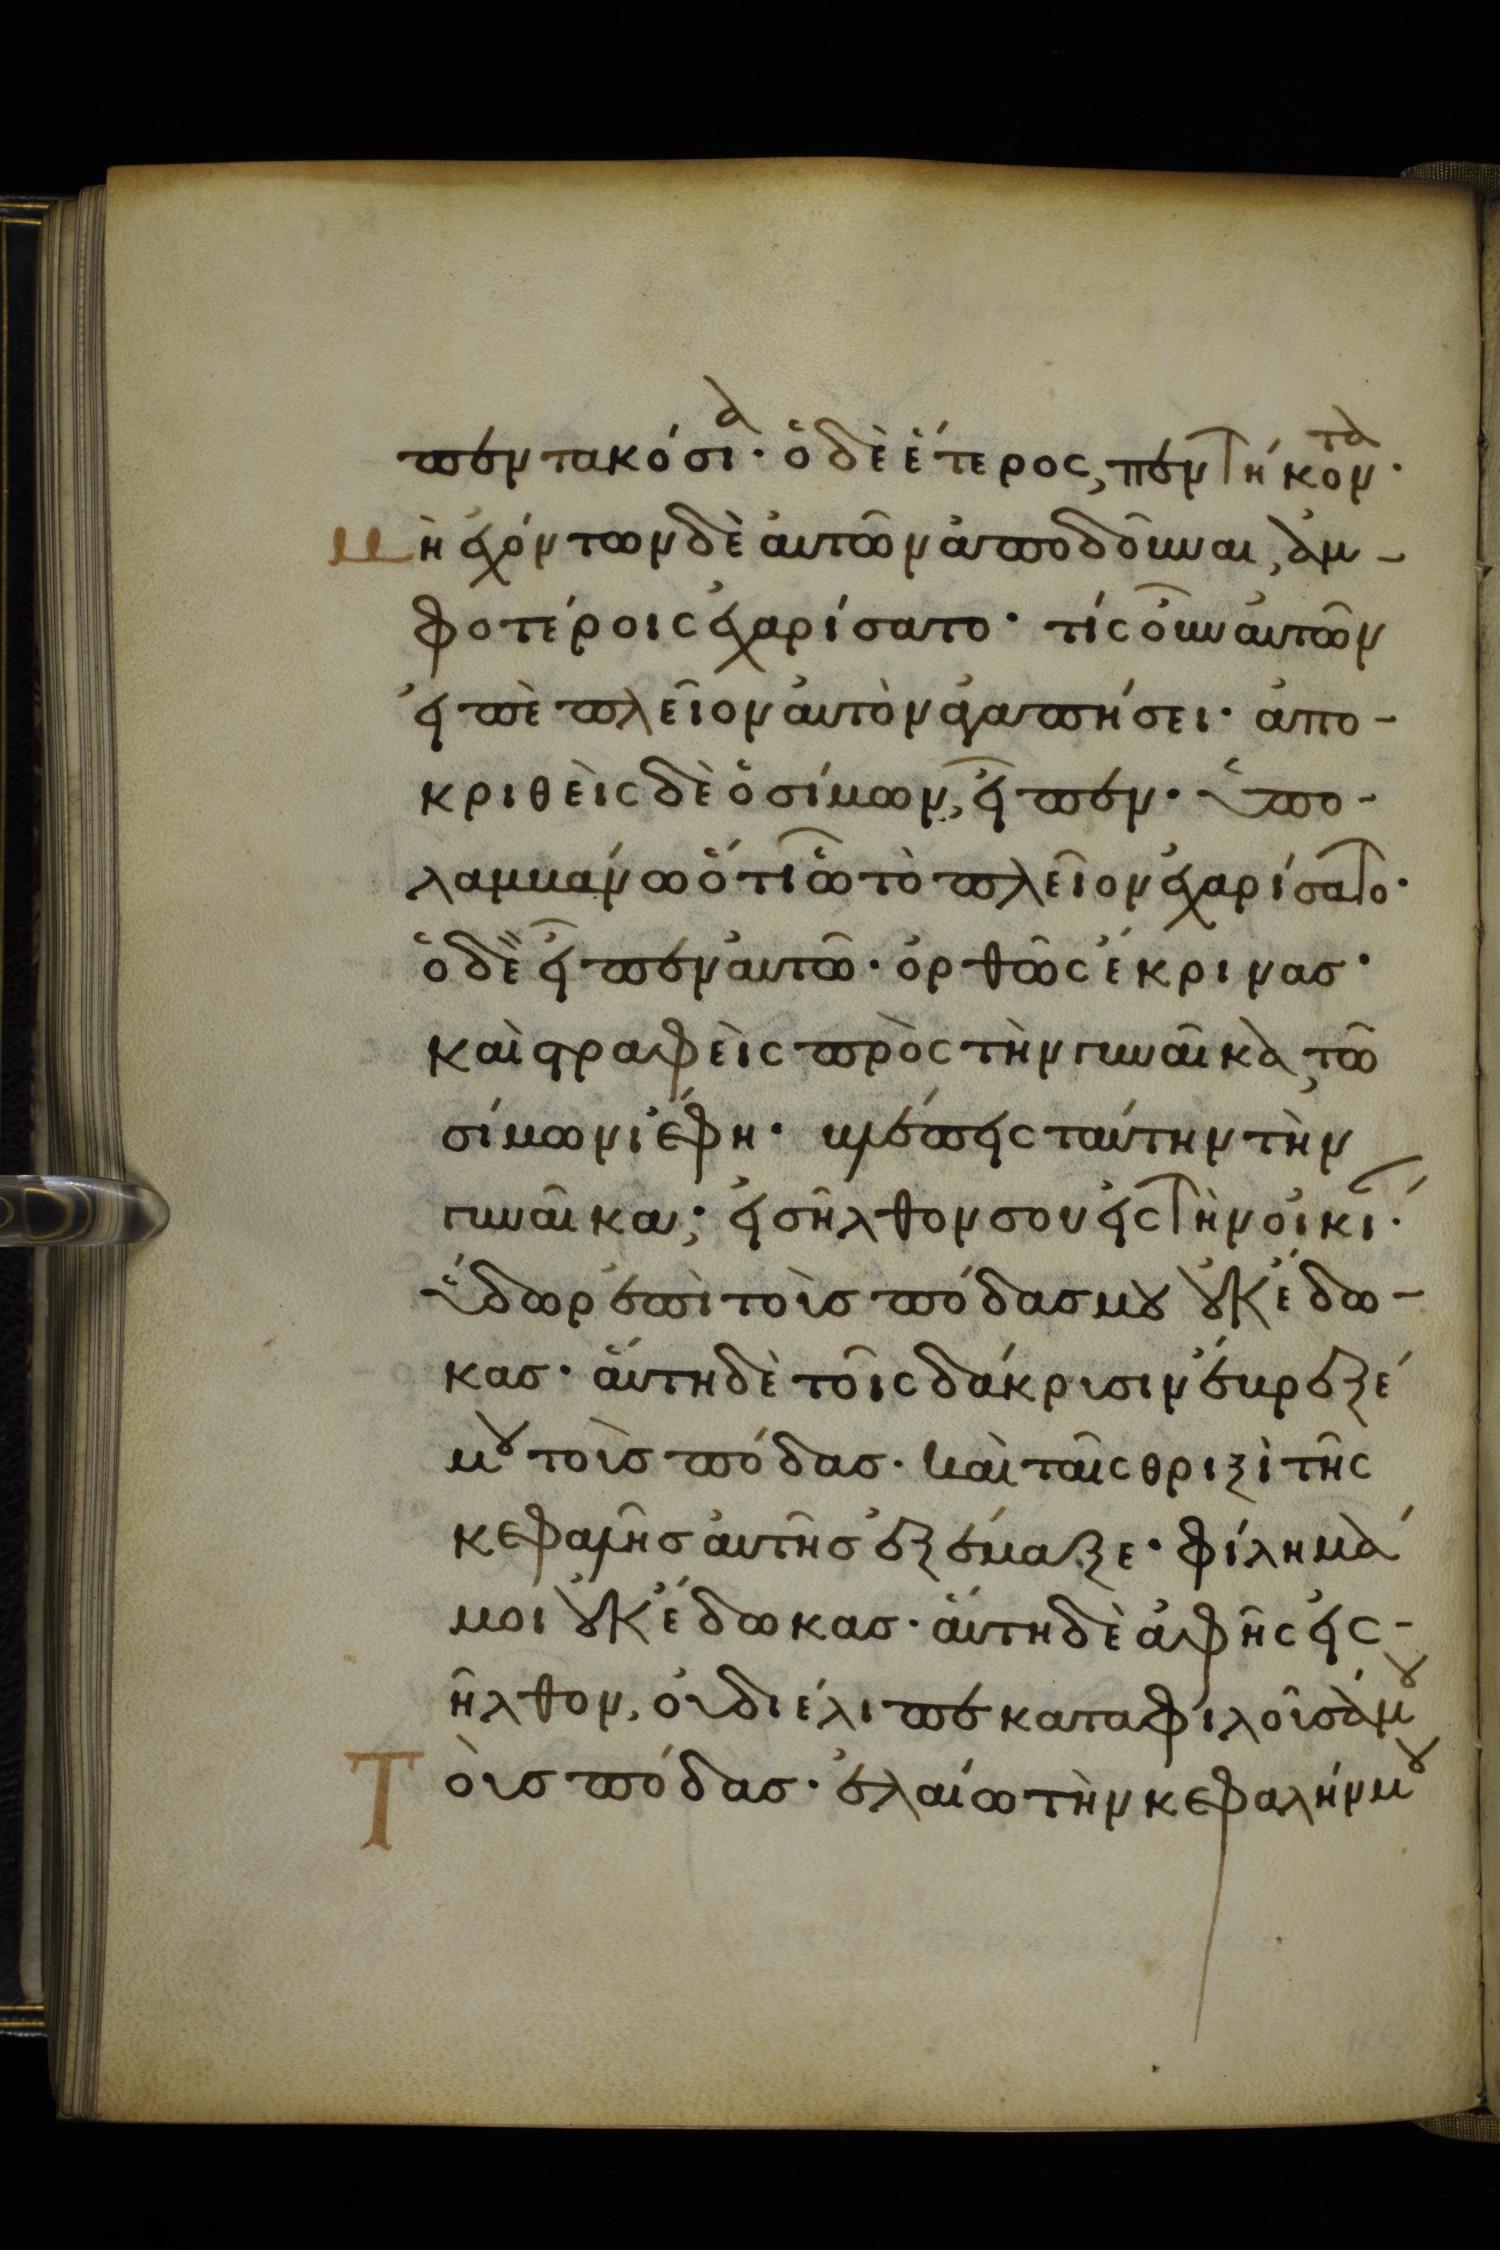 πεντακόσια· ὁ δὲ ἕτερος, πεντήκοντα·
μὴ ἐχόντων δὲ αὐτῶν ἀποδοῦναι, ἀμ-
φοτέροις ἐχαρίσατο· τίς οὖν αὐτῶν
εἰπὲ πλεῖον αὐτὸν ἀγαπήσει· ἀπο-
κριθεὶς δὲ ὁ σίμων, εἶπεν· ὑπο-
λαμβάνω ὅτι ᾧ τὸ πλεῖον ἐχαρίσατο·
ὁ δὲ εἶπεν αὐτῶ· ὀρθῶς ἔκρινας·
καὶ στραφεὶς πρὸς τὴν γυναῖκα, τῶ
σίμωνι ἔφη· βλέπεις ταύτην τὴν
γυναῖκα; εἰσῆλθον σου εἰς τὴν οἰκί·
ὕδωρ ἐπὶ τοὺς πόδας μου οὐκ ἔδω-
κας· αὕτη δὲ τοῖς δάκρυσιν ἔβρεξέ
μου τοὺς πόδας· καὶ ταῖς θριξὶ τῆς
κεφαλῆς αὐτῆς ἐξέμαξε· φίλημά
μοι οὐκ ἔδωκας· αὕτη δὲ ἀφῆς εἰς-
ῆλθον, οὐ διέλιπε καταφιλοῦσά μου
Τοὺς πόδας· ἐλαίω τὴν κεφαλήν μου